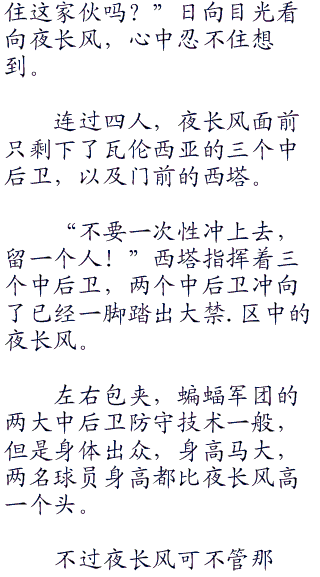 住这家伙吗？”日向目光看
向夜长风，心中忍不住想
到。
连过四人，夜长风面前
只剩下了瓦伦西亚的三个中
后卫，以及门前的西塔。
“不要一次性冲上去，
留一个人！”西塔指挥着三
个中后卫，两个中后卫冲向
了已经一脚踏出大禁.区中的
夜长风。
左右包夹，蝙蝠军团的
两大中后卫防守技术一般，
但是身体出众，身高马大，
两名球员身高都比夜长风高
一个头。
不过夜长风可不管那